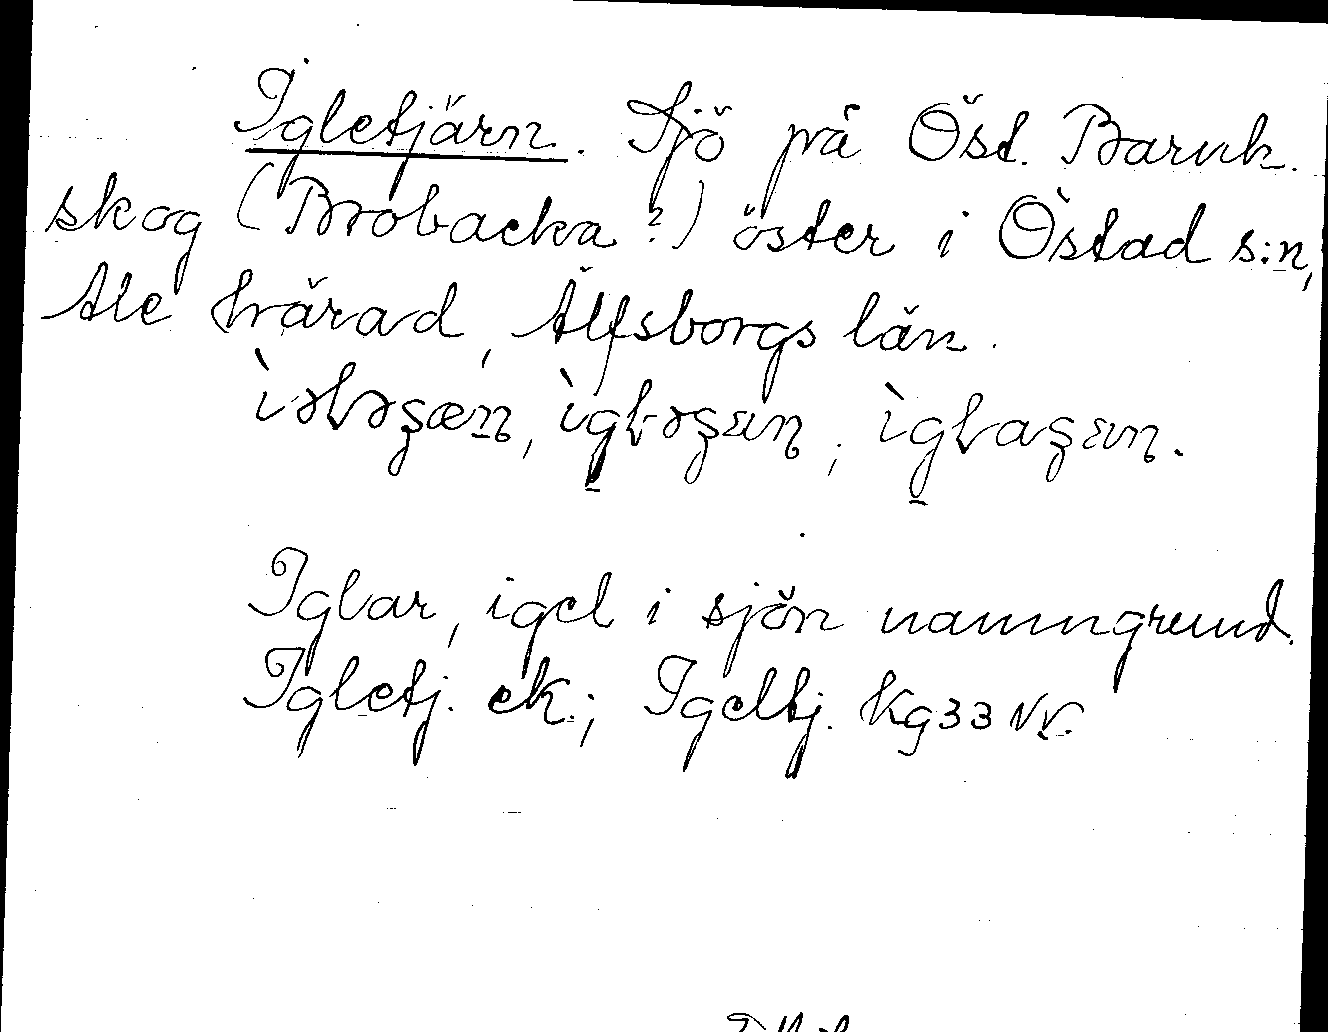 Igletjärn. Sjö på Öst. Baruk.
skog (Brobacka?) öster i Östad s:n,
Ale härad, Älfsborgs län.
Iglar, igel i sjön namngrund.
Igletj. ek.; Igeltj. Kg33 NV.